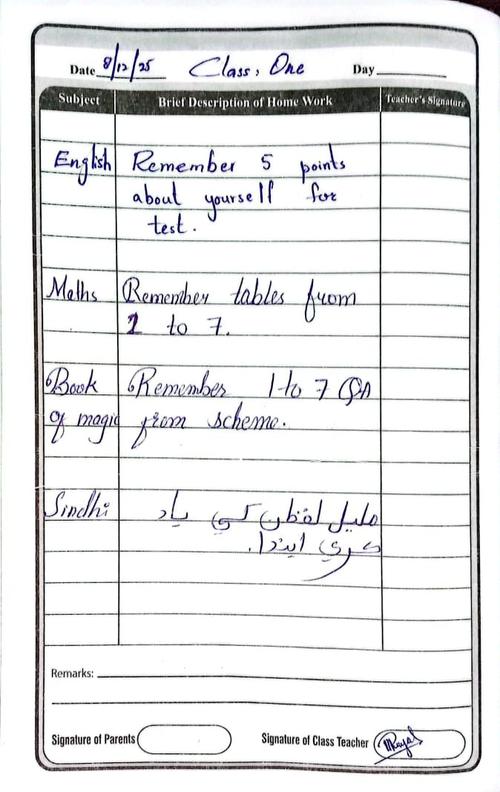 Date 8/12/25 Class, One Day
Subject Brief Description of Home Work Teacher's Signature
English Remember 5 points
about yourself for
test.
Maths Remember tables from
2 to 7.
Book Remember 1 to 7 QA
of magic from scheme.
Sindhi مليل لفظن کي ياد
ڪري ايندا.
Remarks:
Signature of Parents Signature of Class Teacher